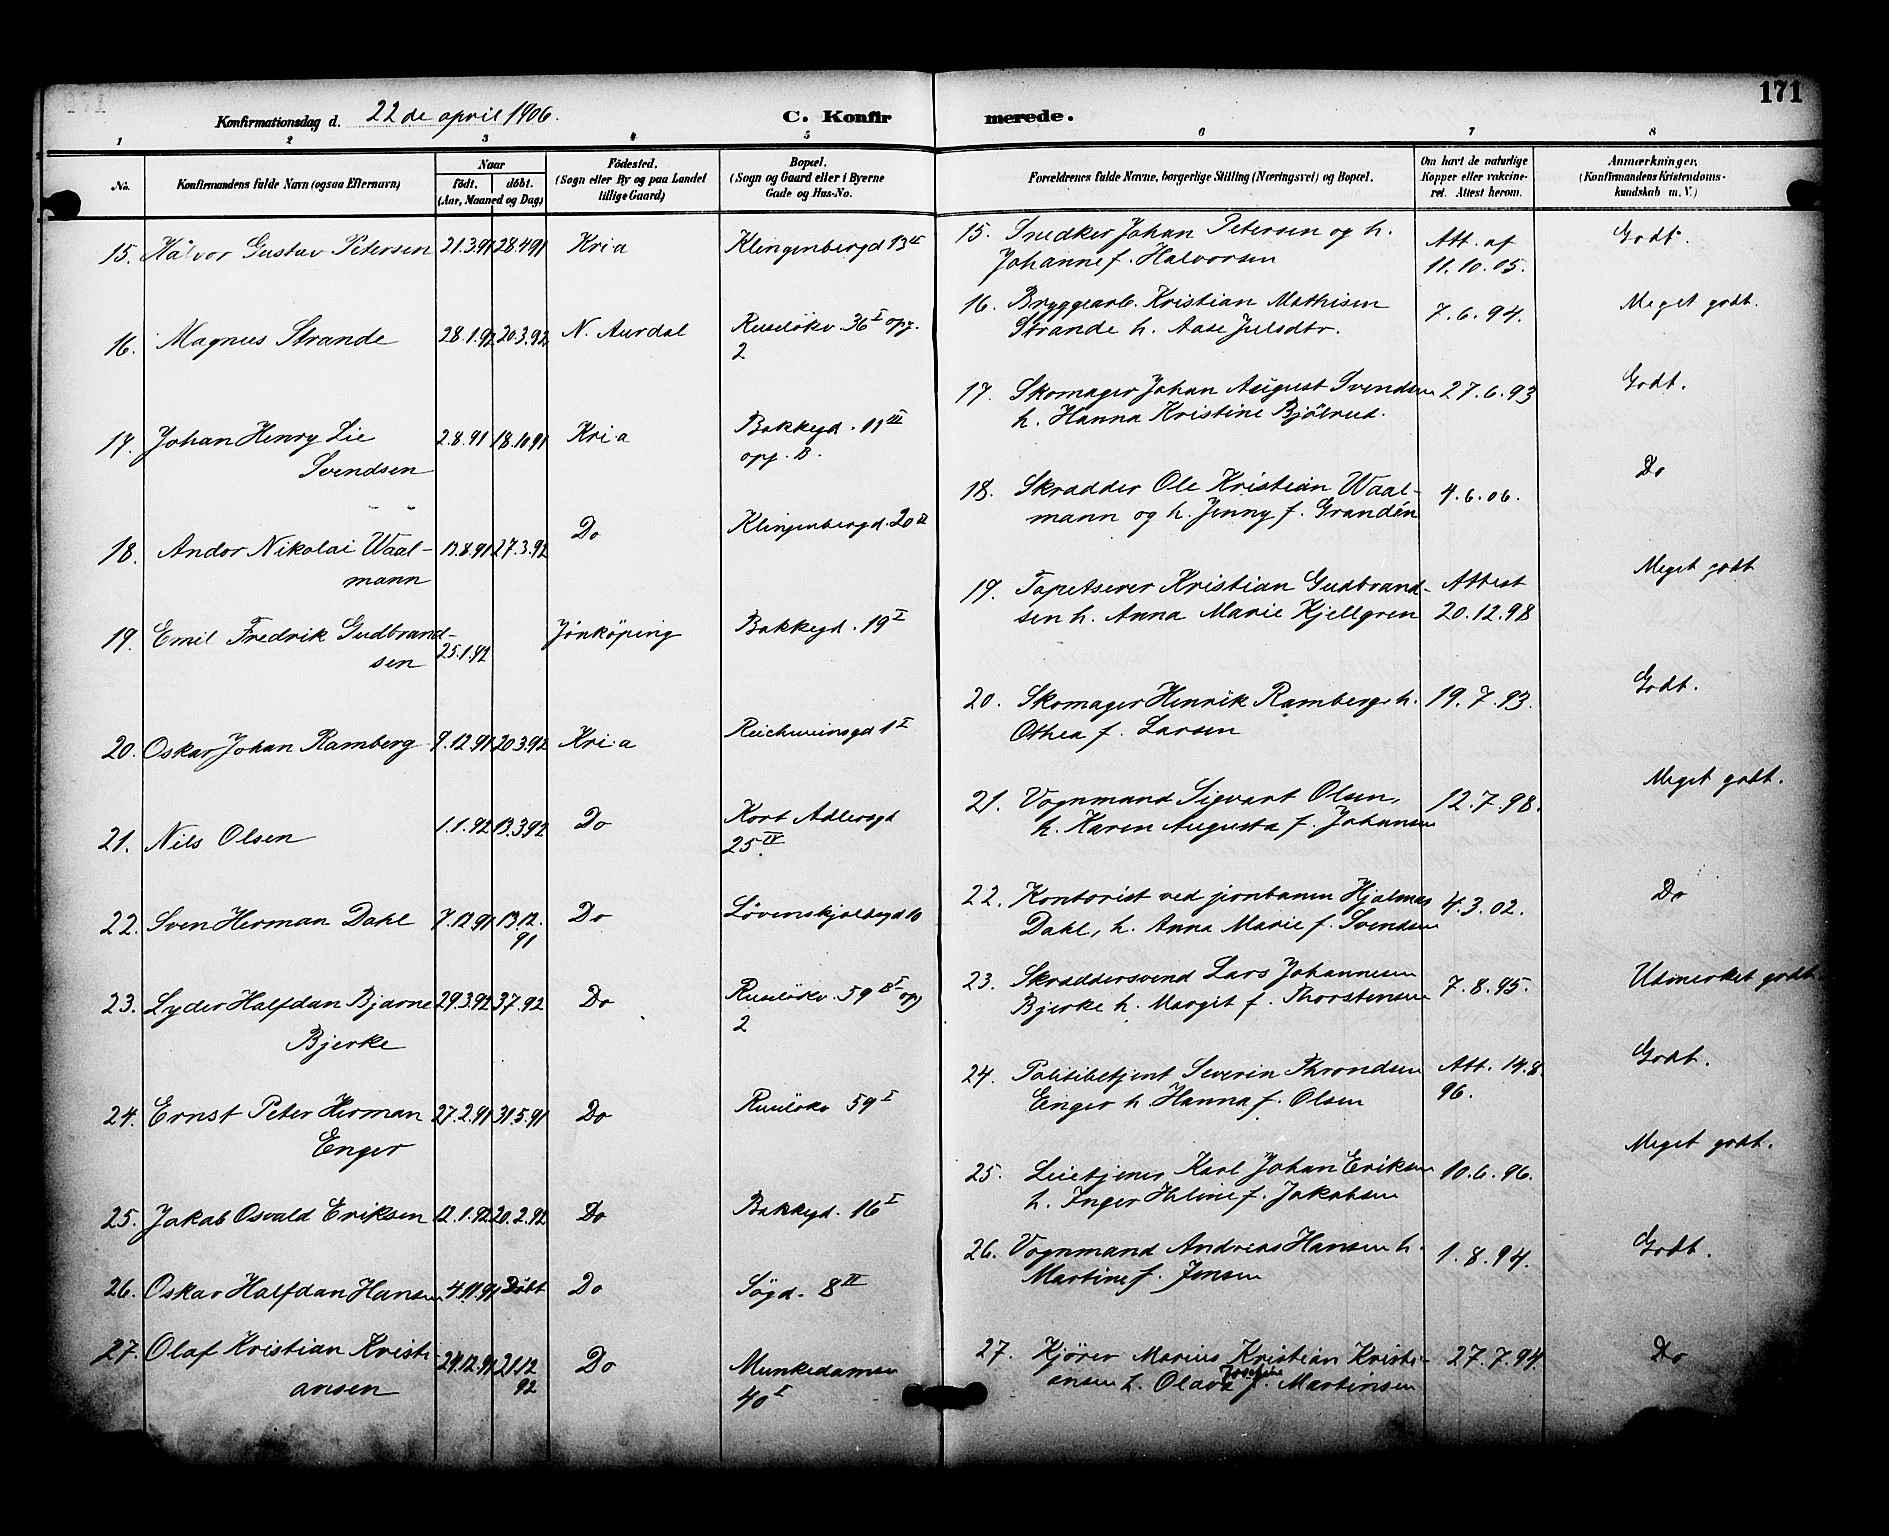 171
Konfirmationsdag d. 22de april 1906.
C. Konfirmerede.
1 2 3 4 5 6 7 8
No.
Konfirmandens fulde Navn (ogsaa Efternavn)
Naar
födt. döbt.
(Aar, Maaned og Dag)
Födested.
(Sogn eller By og paa Landet
tillige Gaard)
Bopæl.
(Sogn og Gaard eller i Byerne
Gade og Hus-No.
Forældrenes fulde Navne, borgerlige Stilling (Næringsvei) og Bopæl.
Om havt de naturlige
Kopper eller vakcine-
ret. Attest herom.
Anmærkninger.
(Konfirmandens Kristendoms-
kundskab m. V.)
15. Halvor Gustav Petersen 21.3.91 28.4.91 Kria Klingenbergd 13 II
15. Snedker Johan Petersen og h.
Johanne f. Halvorsen
Att. af
11.10.05.
Godt.
16. Magnus Strande 28.1.92 20.3.92 N. Aurdal Ruseløkv. 36 I opg.
2
16. Bryggearb. Kristian Mathisen
Strande h. Aase Julsdtr.
7.6.94.
Meget godt.
17. Johan Henry Lie
Svendsen
2.8.91 18.10.91 Kria Bakkegd. 11 III
opg. B.
17. Skomager Johan August Svendsen
h. Hanna Kristine Bjölrud.
27.6.93
Godt.
18. Andor Nikolai Waal-
mann
13.8.91 27.3.92 Do Klingenbergd. 20 II
18. Skradder Ole Kristian Waal-
mann og h. Jenny f. Grandén
4.6.06.
Do
19. Emil Fredrik Gudbrand-
sen
25.1.92 Jönköping Bakkegd. 19 I
19. Tapetserer Kristian Gudbrand-
sen h. Anna Marie Kjellgren
Attest
20.12.98
Meget godt
20. Oskar Johan Ramberg 9.12.91 20.3.92 Kria Reichweinsgd 1 I
20. Skomager Henrik Ramberg h.
Othea f. Larsen
19.7.93.
Godt.
21. Nils Olsen 1.1.92 13.3.92 Do Kort Adlersgd
25 IV
21. Vognmand Sigvart Olsen,
h. Karen Augusta f. Johansen
12.7.98.
Meget godt.
22. Sven Herman Dahl 7.12.91 13.12.
91
Do Løvenskjoldsgd 10
22. Kontorist ved jernbanen Hjalmar
Dahl, h. Anna Marie f. Svendsen
4.3.02.
Do
23. Lyder Halfdan Bjarne
Bjerke
29.3.92 3.7.92 Do Ruseløkv. 59 opg
2
23. Skraddersvend Lars Johannesen
Bjerke h. Margit f. Thorstensen
7.8.95.
Udmerket godt.
24. Ernst Peter Herman
Enger
27.2.91 31.5.91 Do Ruseløkv 59 I
24. Politibetjent Severin Throndsen
Enger h Hanna f. Olsen
Att. 14.8.
96.
Godt.
25. Jakob Osvald Eriksen 12.1.92 20.2.92 Do Bakkegd. 16 I
25. Leietjener Karl Johan Eriksen
h. Inger Heline f. Jakobsen
10.6.96.
Meget godt.
26. Oskar Halfdan Hansen 4.11.91 Döbt Do Søgd. 8 II
26. Vognmand Andreas Hansen h.
Martine f. Jensen
1.8.94.
Godt.
27. Olaf Kristian Kristi-
ansen
24.12.91
92
Do Munkedamsv
40 I
27. Kjører Marius Kristian Kristi-
ansen h. Olava Josefine f. Martinsen
27.7.94
Do